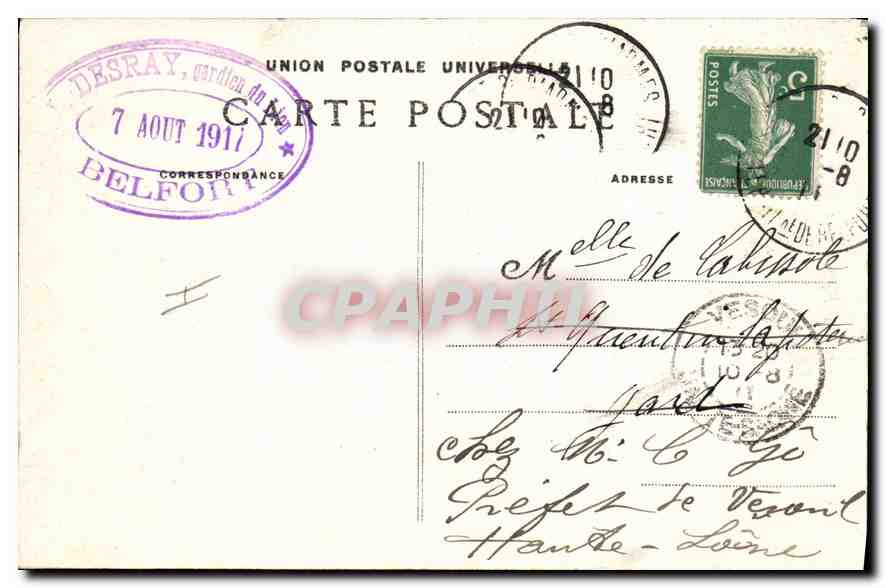 UNION POSTALE UNIVERSELLE
CARTE POSTALE
DESRAY, gardien du Lion
7 AOUT 1911
BELFORT
CORRESPONDANCE
ADRESSE
5c
POSTES
REPUBLIQUE FRANÇAISE
21 10
8
21 10
-8
Melle de Labissole
CPAPHIL
St Quentin la poterie
Gard
VESOUL
10 -8
chez Mr C Gô
Préfet de Vesoul
Haute-Saône